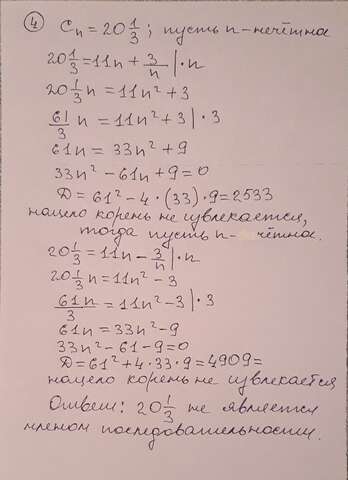 ④ Cₙ = 20 1/3; пусть n-нечётное
20 1/3 = 11n + 3/n | · n
20 1/3 n = 11n² + 3
61/3 n = 11n² + 3 | · 3
61n = 33n² + 9
33n² - 61n + 9 = 0
D = 61² - 4 · (33) · 9 = 2533
нацело корень не извлекается,
тогда пусть n- чётное.
20 1/3 = 11n - 3/n | · n
20 1/3 n = 11n² - 3
61n/3 = 11n² - 3 | · 3
61n = 33n² - 9
33n² - 61 - 9 = 0
D = 61² + 4 · 33 · 9 = 4909 =
нацело корень не извлекается
Ответ: 20 1/3 не является
членом последовательности.